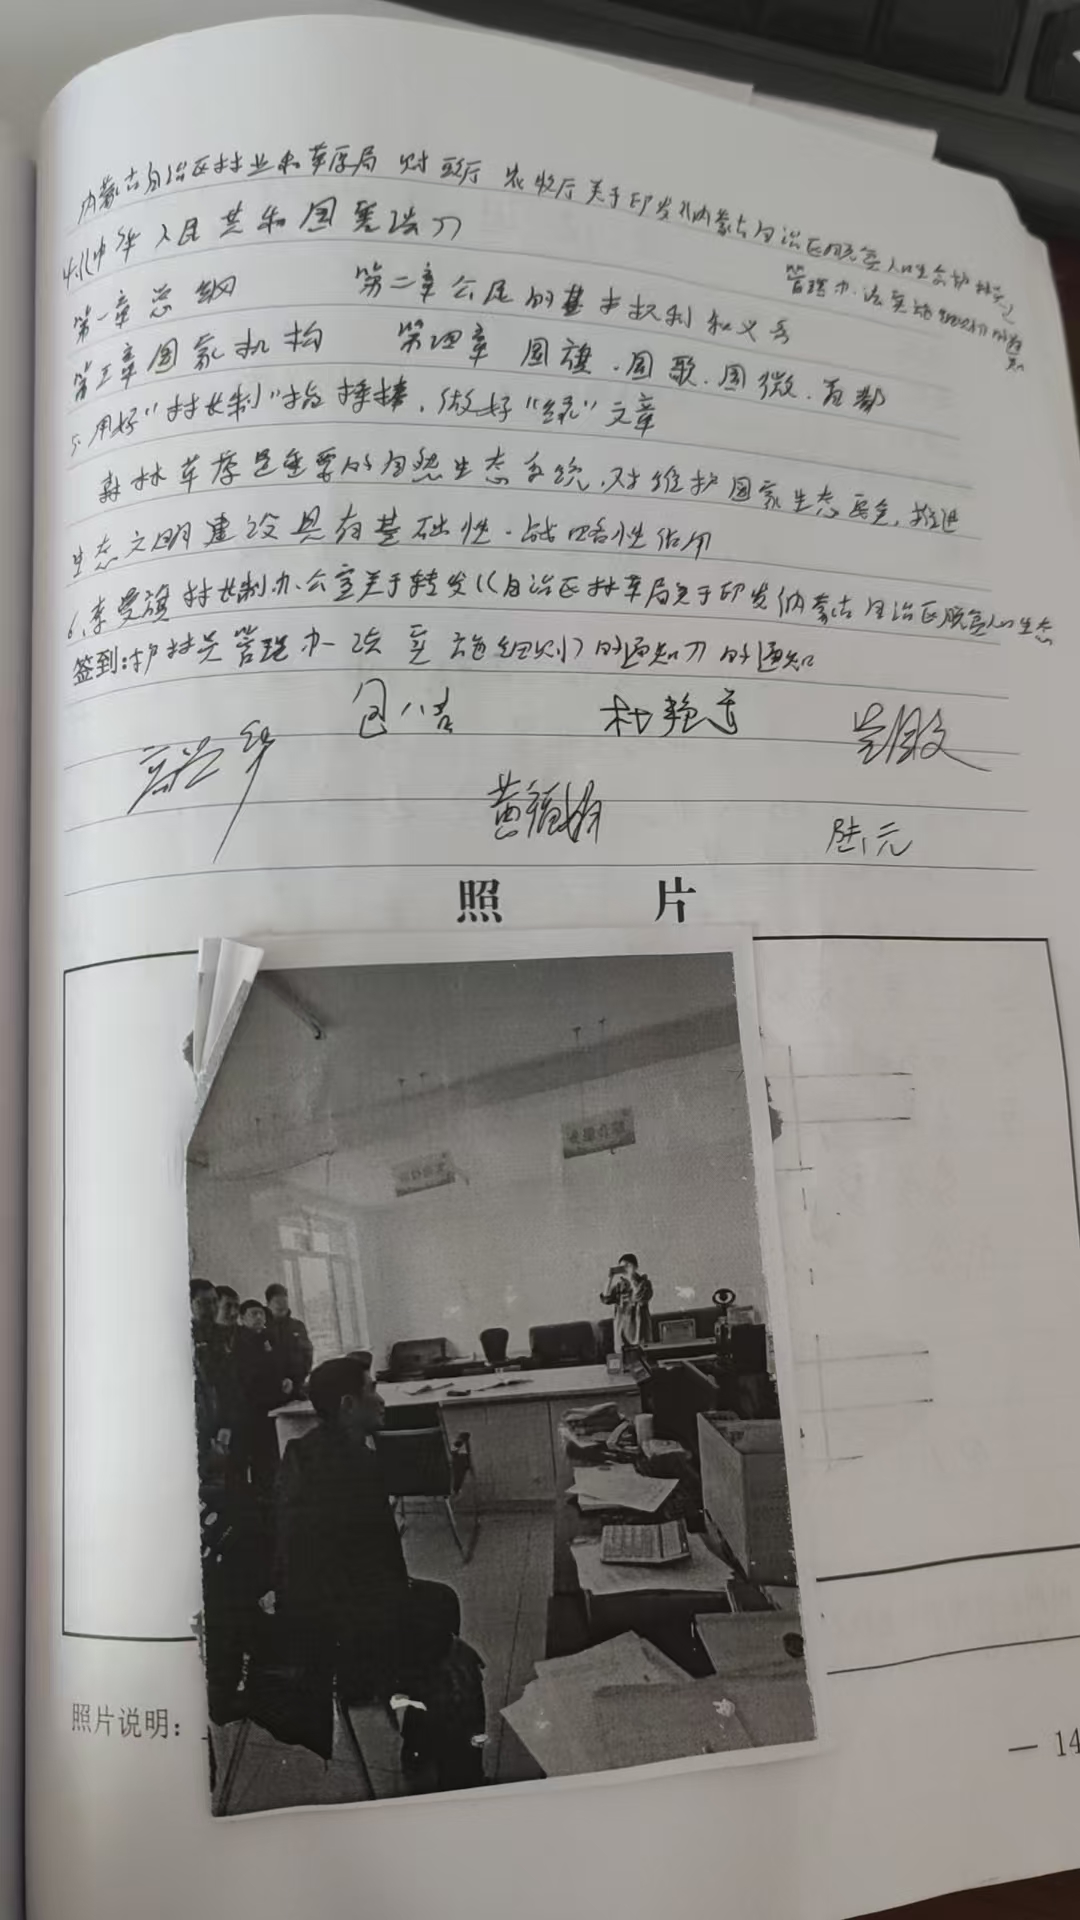 内蒙古自治区林业和草原局 财政厅 农牧厅关于印发《内蒙古自治区脱贫人口生态护林员
管理办法实施细则》的通知
4.《中华人民共和国宪法》
第一章总纲 第二章公民的基本权利和义务
第三章国家机构 第四章 国旗.国歌.国徽.首都
5.用好“林长制”指挥棒,做好“绿”文章
森林草原是重要的自然生态系统,对维护国家生态安全,推进
生态文明建设具有基础性.战略性作用
6.奈曼旗林长制办公室关于转发《自治区林草局关于印发《内蒙古自治区脱贫人口生态
签到:护林员管理办法实施细则》的通知》的通知
包八吉 杜艳
黄福 陆元
照 片
照片说明:
— 14